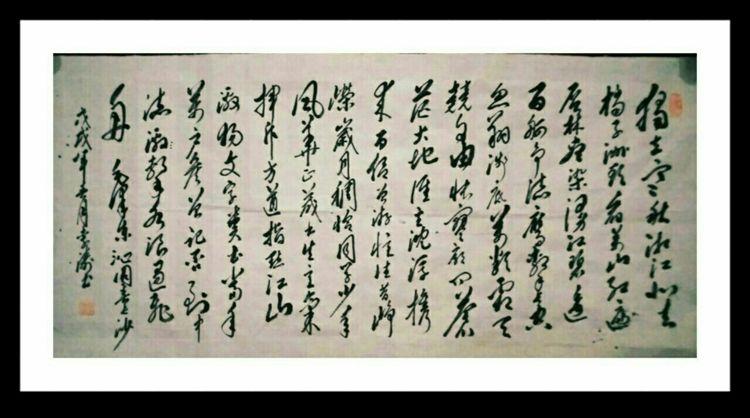 獨立寒秋湘江北去
橘子洲頭看萬山红遍
层林尽染漫江碧透
百舸争流鹰擊长空
鱼翔浅底萬類霜天
競自由怅寥廓问蒼
茫大地谁主沉浮携
来百侣曾游忆往昔峥
嵘歲月稠恰同学少年
風華正茂书生意氣
挥斥方遒指點江山
激扬文字粪土当年
萬户侯曾记否到中
流擊水浪遏飛
舟 毛澤东沁園春长沙
戊戌年月书